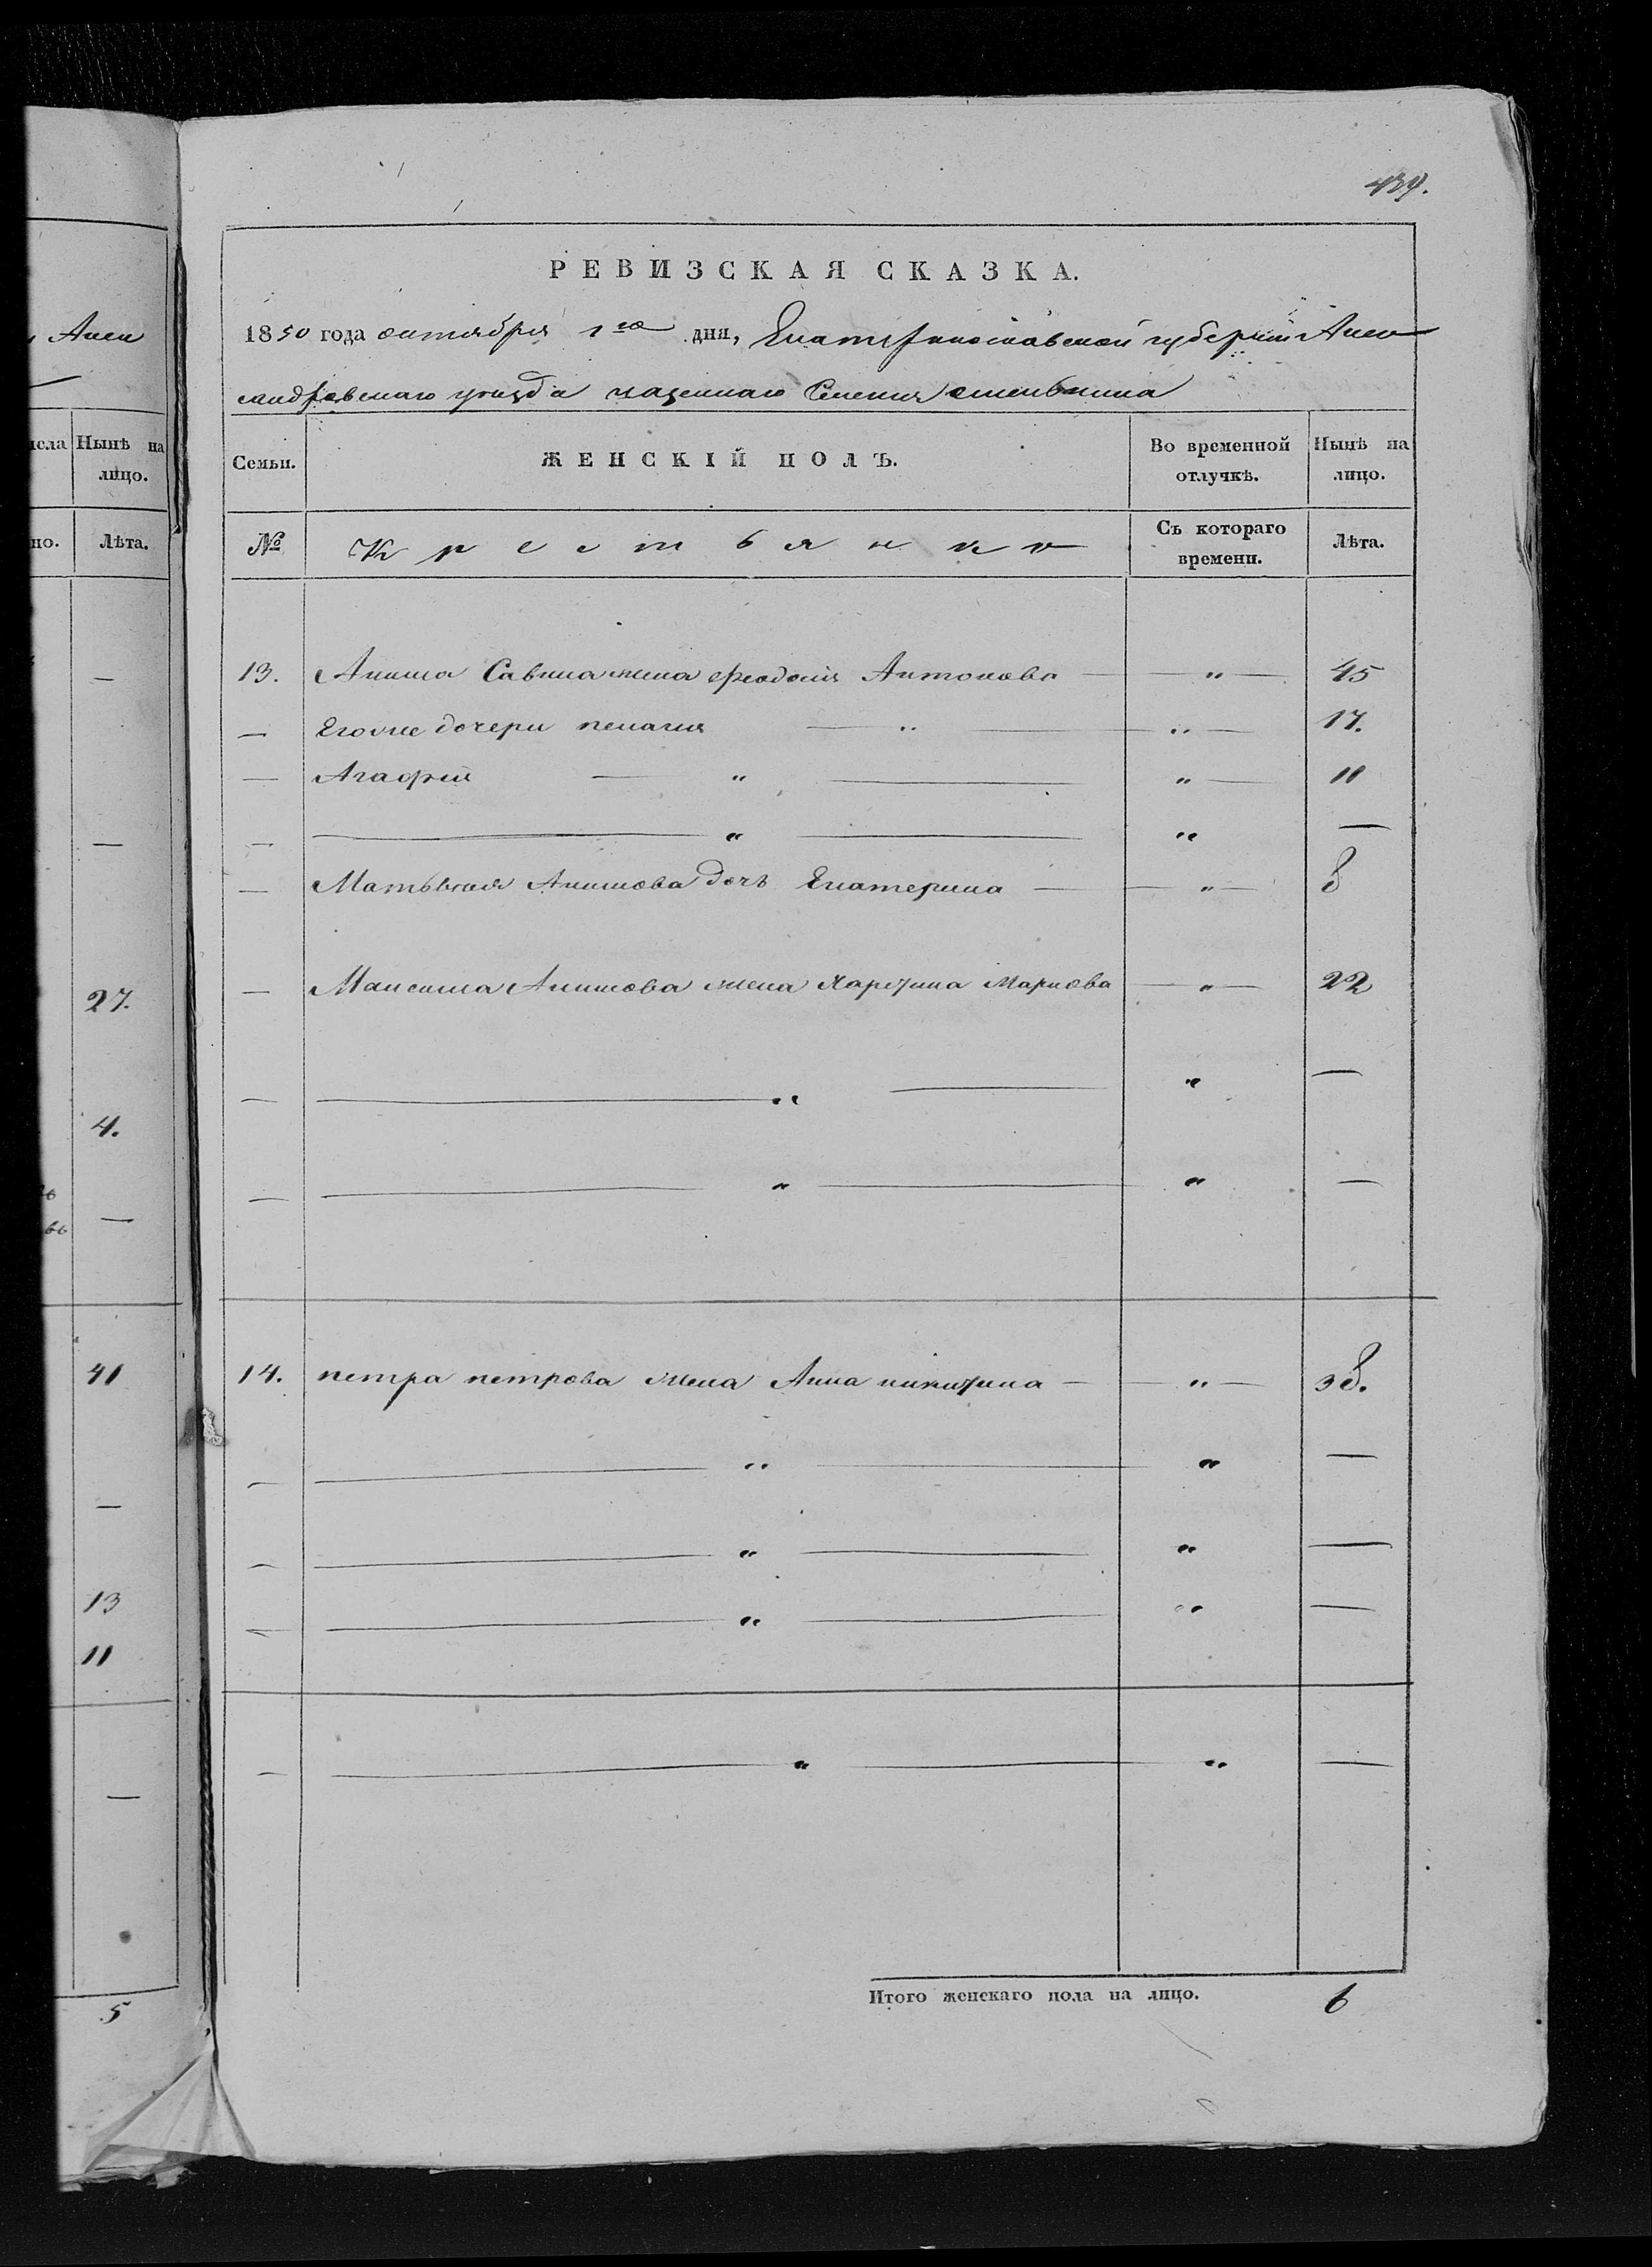 439.
Алек
РЕВИЗСКАЯ СКАЗКА.
1850 года октября 1го дня, Екатеринославской губернии Алек
сандровскаго уезда казеннаго Селения
исла
Нынѣ на лицо.
Семьи.
ЖЕНСКІЙ ПОЛЪ.
Во временной отлучкѣ.
Нынѣ на лицо.
но.
Лѣта.
№
Крестьянки
Съ котораго времени.
Лѣта.
13. Акима Савина жена Феодосия Антонова — " — 45
— Его же дочери пелагия — " — " — 17.
— Агафия — " — " — 11
— — " — " —
— Матвъя Акимова дочь Екатерина — " — 8
27.
— Максима Акимова жена Харитина Маркова — " — 22
4.
— — " — " —
— — " — " —
41
14. петра петрова жена Анна никитина — " — 38.
— — " — " —
— — " — " —
13
— — " — " —
11
— — " — " —
5
Итого женскаго пола на лицо. 6